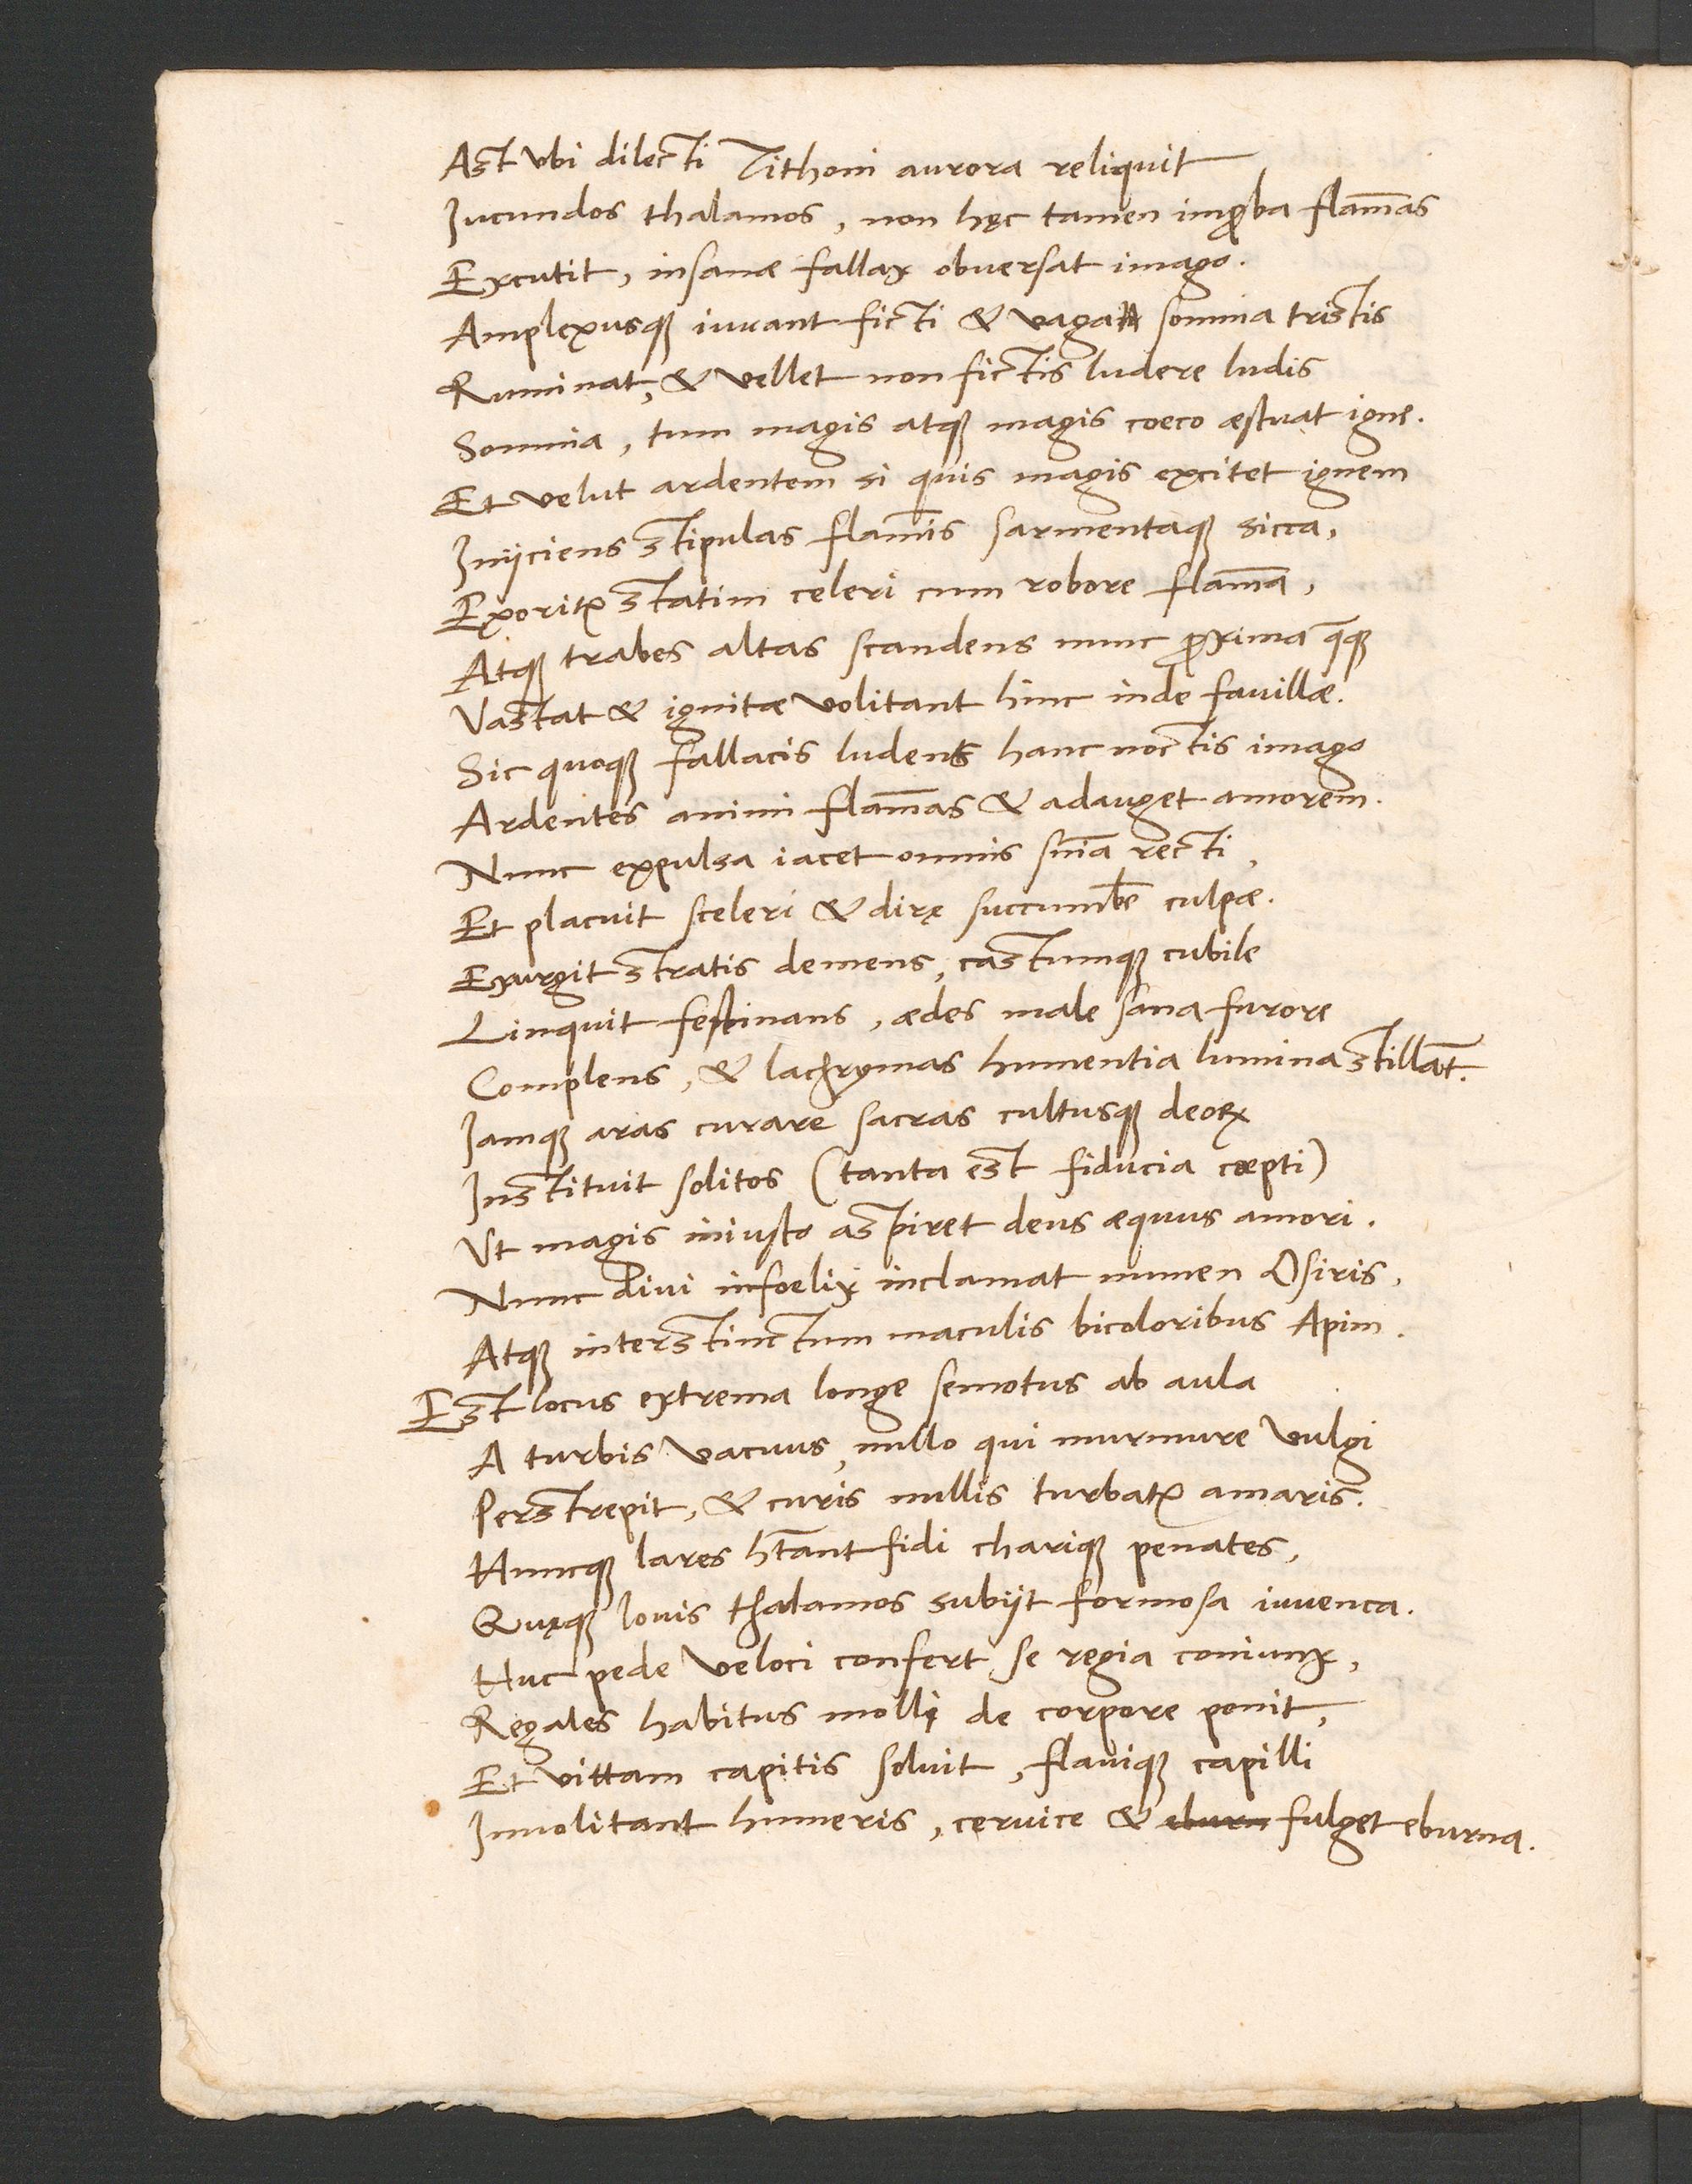 Ast vbi dilecti Tithoni aurora reliquit
Iucundos thalamos, non hęc tamen improba flam̄as
Excutit, insanæ fallax obuersat imago.
Amplexusq́ꝫ iuvant ficti & vaga somnia tristis
Ruminat, & vellet non fictis ludere ludis
Somnia, tum magis atqꝫ magis coeco æstuat igne.
Et velut ardentem si quis magis excitet ignem
Inijciens stipulas flam̄is sarmentaqꝫ sicca,
Exoritᷣ statim celeri cum robore flam̄a,
Atqꝫ trabes altas scandens nunc ꝓxima q̄qꝫ
Vastat & ignitæ volitant hinc inde fauillæ.
Sic quoqꝫ fallacis ludens hanc noctis imago
Ardentes animi flam̄as & adauget amorem.
Nunc expulsa iacet omnis sn̄ia recti,
Et placuit sceleri & dirę succumbe᷑ culpæ.
Exurgit stratis demens, castumqꝫ cubile
Linquit festinans, ædes male sana furore
Complens, & lachrymas humentia lumina stillāt.
Iamqꝫ aras curare sacras cultusqꝫ deoꝝ
Instituit solitos (tanta est fiducia cæpti)
Vt magis iniusto aspiret deus æquus amori.
Nunc diui infoelix inclamat numen Osiris,
Atqꝫ interstinctum maculis bicoloribus Apim.
Est locus extrema longe semotus ab aula
A turbis vacuus, nullo qui murmure vulgi
Perstrepit, & curis nullis turbatᷣ amaris.
Huncqꝫ lares ht̄ant fidi chariqꝫ penates,
Quęqꝫ Iouis thalamos subijt formosa iuuenca.
Huc pede veloci confert se regia coniunx,
Regales habitus molli de corpore ponit,
Et vittam capitis soluit, flauiqꝫ capilli
Inuolitant humeris, ceruice & eburn fulget eburna.